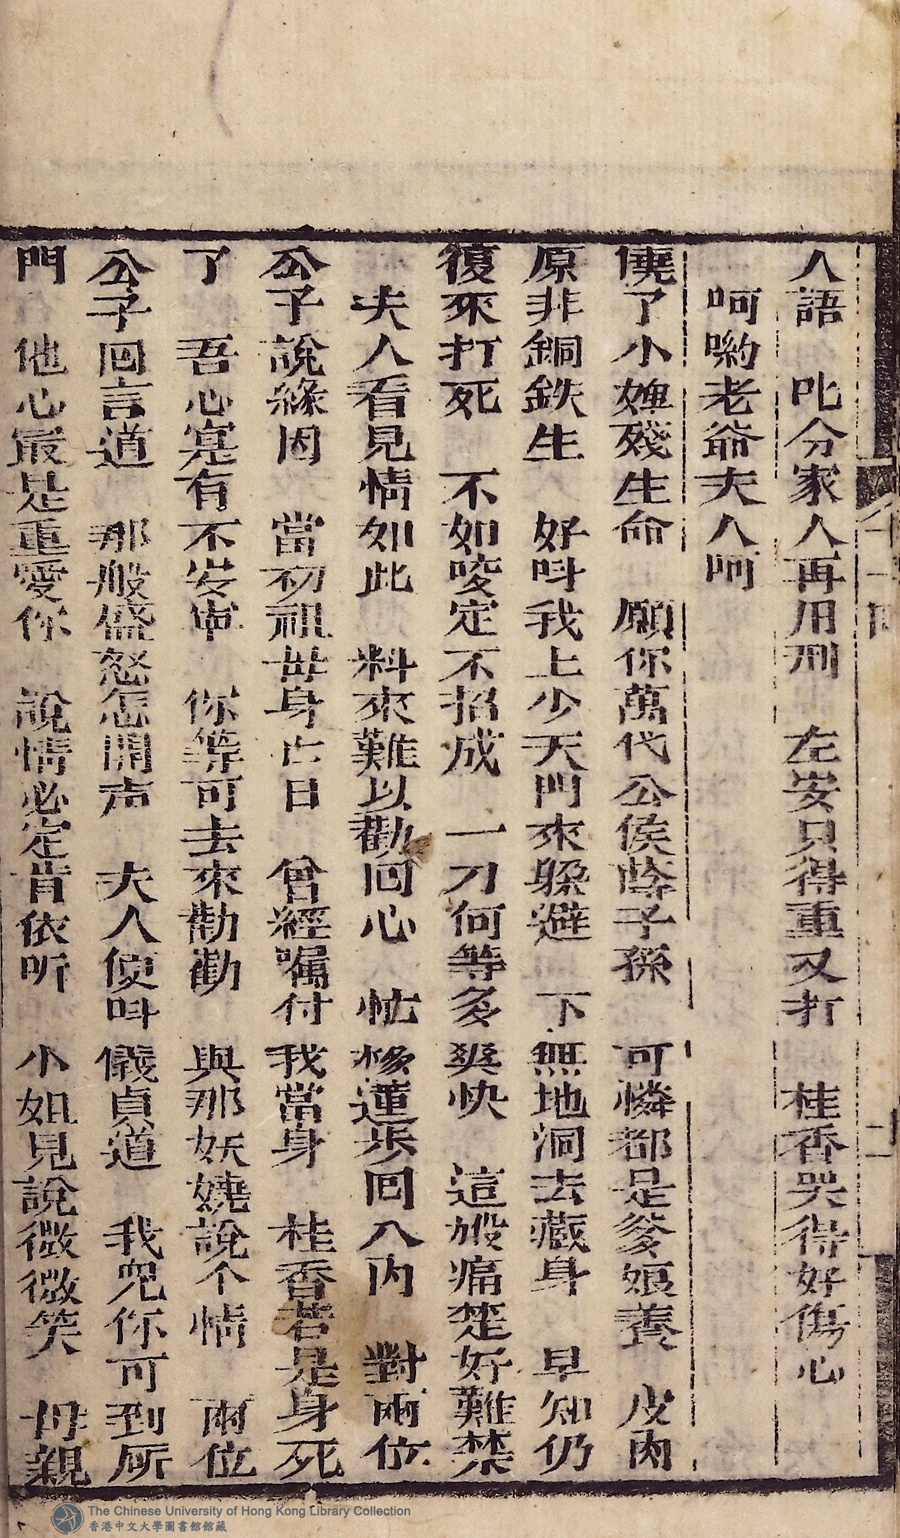 人語　叱分家人再用刑　左安只得重又打　桂香哭得好傷心
呵喲老爺夫人呵
僥了小婢殘生命　願你萬代公侯蔭子孫　可憐都是爹娘養　皮肉
原非銅鉄生　好呌我上少天門來躱避　下無地洞去藏身　早知仍
復來打死　不如咬定不招成　一刀何等多爽快　這般痛楚好難禁
夫人看見情如此　料來難以勸回心　忙移蓮步回入內　對兩位
公子說緣因　當初祖母身亡日　曾經囑付我當身　桂香若是身死
了　吾心寔有不安寕　你等可去來勸勸　與那妖嬈說个情　兩位
公子回言道　那般盛怒怎開声　夫人便呌儀貞道　我兒你可到所
門　他心㝡是重愛你　說情必定肯依听　小姐見說微微笑　母親
The Chinese University of Hong Kong Library Collection
香港中文大學圖書館館藏